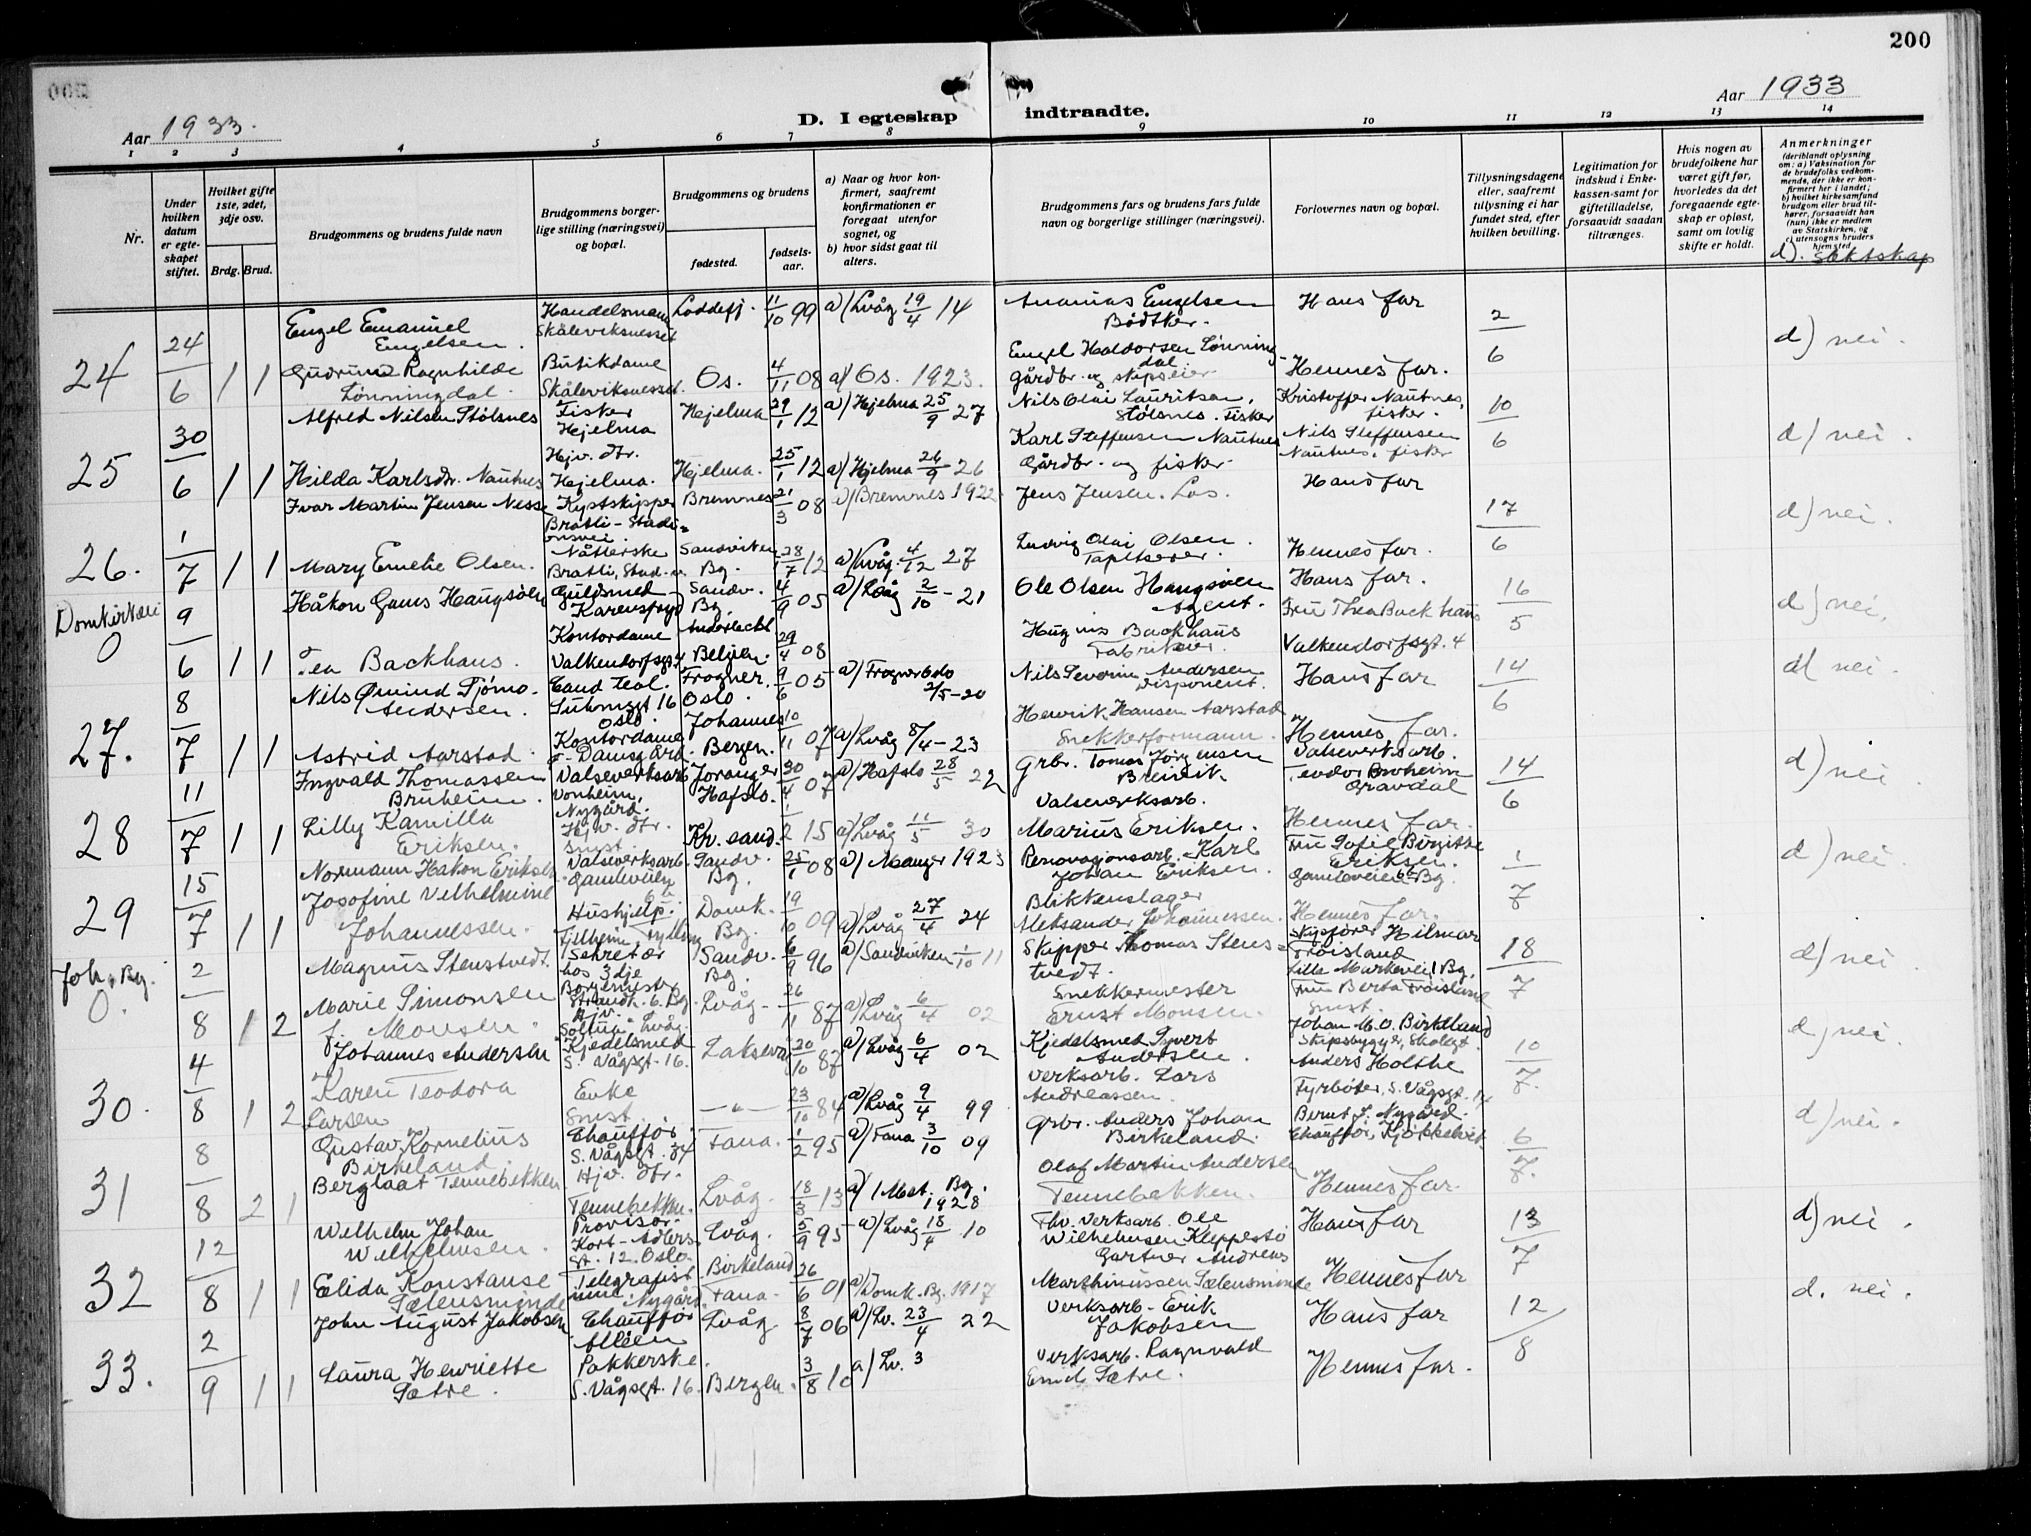 200
Aar 1933.
D. I egteskap indtraadte.
Aar 1933
1 2 3 4 5 6 7 8 9 10 11 12 13 14
Nr.
Under hvilken datum er egteskapet stiftet.
Hvilket gifte 1ste, 2det, 3dje osv.
Brdg. Brud.
Brudgommens og brudens fulde navn
Brudgommens borgerlige stilling (næringsvei) og bopæl.
Brudgommens og brudens
fødested.
fødselsaar.
a) Naar og hvor konfirmert, saafremt konfirmationen er foregaat utenfor sognet, og
b) hvor sidst gaat til alters.
Brudgommens fars og brudens fars fulde navn og borgerlige stillinger (næringsvei).
Forlovernes navn og bopæl.
Tillysningsdagene eller, saafremt tillysning ei har fundet sted, efter hvilken bevilling.
Legitimation for indskud i Enkekassen-samt for giftetilladelse, forsaavidt saadan tiltrænges.
Hvis nogen av brudefolkene har været gift før, hvorledes da det foregaaende egteskap er opløst, samt om lovlig skifte er holdt.
Anmerkninger (deriblandt oplysning om: a) Vaksination for de brudefolks vedkommende, der ikke er konfirmert her i landet; b) hvilket kirkesamfund brudgom eller brud tilhører, forsaavidt han (hun) ikke er medlem av Statskirken, og c) utensogns bruders hjemsted.
d). Slektskap
24 24/6 1 1 Engel Emanuel Engelsen. Handelsmann Skåleviksnesset Loddefj. 11/10 99 a) Lvåg 19/4 14 Ananias Engelsen Bødtker. Hans far 2/6 d) nei.
Gudrun Ragnhilde Lønningdal. Butikdame Skåleviksnesset. Os. 4/11 08 a) Os. 1923. Engel Haldorsen Lønningdal gårdbr. og skipseier Hennes far.
25 30/6 1 1 Alfred Nilsen Stølsnes Fisker Hjelma Hjelma 29/1 12 a) Hjelma 25/9 27 Nils Olai Lauritsen, Stølsnes. Fisker Kristoffer Nautnes, fisker. 10/6 d) nei.
Hilda Karlsdtr. Nautnes Hjv. dtr. Hjelma. Hjelma. 25/1 12 a) Hjelma 26/9 26 Karl Steffensen Nautnes Gårdbr. og fisker Nils Steffensen Nautnes, fisker
26. 1/7 1 1 Ivar Martin Jensen Nesse Kystskipper Bratli - Stadionsvei Bremnes 21/3 08 a) Bremnes 1922. Jens Jensen. Los. Hans far 17/6 d) nei.
Mary Emelie Olsen. Nåtlerske Bratli, Stad. Sandviken Bg. 28/7 12 a) Lvåg 4/12 27 Ludvig Olai Olsen. Tapetserer. Hennes far.
Domkirken 0 9/6 1 1 Håkon Hangsøen Guldsmed Sandv. Bg. 4/9 05 a) Lvåg 2/10 - 21 Ole Olsen Hangsøen Agent. Hans far. 16/5 d) nei.
Tea Backhaus. Kontordame Valkendorfsgt. 4 Anderlecht Belgien. 29/4 08 Backhaus Fabrikeier. Fru Thea Backhaus Valkendorfsgt. 4
27. 8/7 1 1 Nils Øivind Tjømo-Andersen. Cand teol. Oslo. Frogner. Oslo. 9/6 05 a) Frogner Oslo 2/5 - 20 Nils Severin Andersen Disponent. Hans far 14/6 d) nei.
Astrid Aarstad. Kontordame Damsgård. Johannes Bergen. 10/11 07 a) Lvåg 8/4 - 23 Henrik Hansen Aarstad Snekkerformann. Hennes far.
28 11/7 1 1 Ingvald Thomassen Bruheim. Valseverksarb Nygård. Joranger Hafslo. 30/4 07 a) Hafslo 28/5 22 Grbr. Tomas Jørgensen Breivik Valseverksarb. Teodor Bruheim Gravdal 14/6 d) nei.
Lilly Kamilla Eriksen. Hjv. dtr. Smst. Kr. sand. 1/2 15 a) Lvåg 11/5 30 Valseverksarb. Marius Eriksen. Hennes far.
29 15/7 1 1 Normann Håkon Eriksen Valseverksarb. Gamleveien Sandv. Bg. 25/1 08 a) Manger 1923 Renovasjonsarb. Karl Johan Eriksen. Fru Sofie Birgitte Eriksen. Gamleveien Bg. 1/7 d) nei.
Josofine Velhelmine Johannessen. Hushjelp. Domk. Bg. 19/10 09 a) Lvåg 27/4 24 Blikkenslager Aleksander Johannessen. Hennes far.
Joh. Bg. 0. 2/8 1 2 Magnus Stenstvedt. Sekretær hos 3dje Borgermester Strandk. 6. Bg. Sandv. Bg. 6/9 96 a) Sandviken 1/10 11 Skipper Thomas Stenstvedt. Skipsfører Hilmar Trøisland Lille Markevei 1 Bg. 18/7 d) nei.
Marie Simonsen f. Monsen. Hjv. Lvåg. Lvåg. 26/11 87 a) Lvåg 6/4 02 Snekkermester Ernst Monsen. Fru Berta Trøisland Smst.
30. 4/8 1 2 Johannes Andersen Kjedelsmed S. Vågsgt. 16. Laksevåg 20/10 87 a) Lvåg 6/4 02 Kjedelsmed Syvert Andersen. Johan M. O. Birkeland Skipsbygger, Skolegt. 10/7. d) nei.
Karen Teodora Larsen Enke Smst. — " — 23/10 84 a) Lvåg 9/4 99 Verksarb. Lars Andreassen. Anders Holthe Fyrbøter, S. Vågsgt.
31 8/8 2 1 Gustav Kornelius Birkeland. Chauffør. S. Vågsgt. 34 Fana. 1/2 95 a) Fana 3/10 09 Grbr. Anders Johan Birkeland. Bernt J. Nygård. Chauffør, 6/7. d) nei.
Berglaat Tennebekken Hjv. dtr. Tennebekken. Lvåg. 18/3 13 a) Met. Bg. 1928 Olaf Martin Andersen Tennebekken. Hennes far.
32 12/8 1 1 Wilhelm Johan Wilhelmsen. Provisor. Kort-Adelersgt. 12. Oslo. Lvåg. 5/9 95 a) Lvåg 18/4 10 Fhv. verksarb. Ole Wilhelmsen Kleppestø Hans far 13/7 d) nei.
Elida Konstanse Sælensminde Telegrafistinne. Nygård. Birkeland Fana. 26/6 01 a) Domk. Bg. 1917 Gartner Andreas Marthinussen Sælensminde Hennes far
33. 2/9 1 1 John August Jakobsen Chauffør Alléen Lvåg. 8/7 06 a) Lv. 23/4 22 Verksarb. Erik Jakobsen Hans far 12/8 d. nei.
Laura Henriette Sætre. Pakkerske. S. Vågsgt. 16. Bergen. 3/8 10 a) Lv. 3 Verksarb. Ragnvald Emil Sætre. Hennes far.